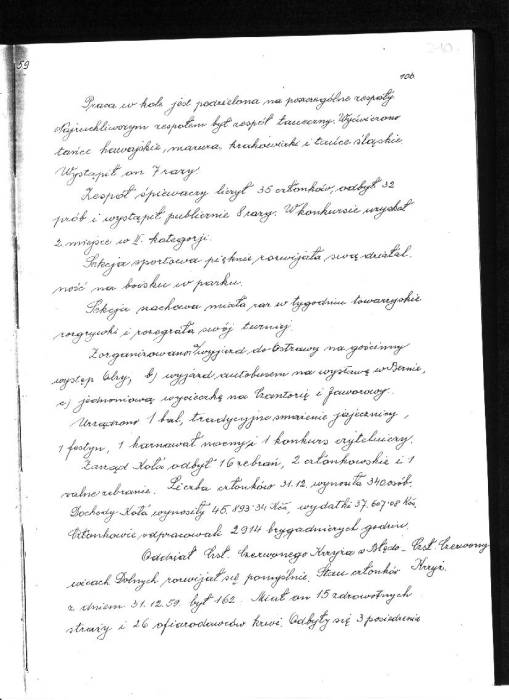 59
106
Praca w kole jest podzielona na poszczególne zespoły
Najruchliwszym zespołem był zespół taneczny. Wyćwiczono
tańce hawajskie, mazura, krakowiaki i tańce śląskie
Wystąpił on 7 razy.
Zespół śpiewaczy liczył 35 członków, odbył 32
prób i wystąpił publicznie 8 razy. W konkursie uzyskał
2. miejsce w II. kategorji.
Sekcja sportowa pięknie rozwijała swą działal-
ność na boisku w parku.
Sekcja szachowa miała raz w tygodniu towarzyskie
rozgrywki i rozegrała swój turniej
Zorganizowano wyjazd do Ostrawy na gościnny
występ Olzy, b) wyjazd autobusem na wystawę w Bernie,
c) jednodniową wycieczkę na Czantorję i Jaworowy.
Urządzono 1 bal, tradycyjne smażenie jajecznicy,
1 festyn, 1 karnawał nocny i 1 konkurs czytelniczy.
Zarząd Koła odbył 16 zebrań, 2 członkowskie i 1
walne zebranie. Liczba członków 31.12. wynosiła 340 osób.
Dochody Koła wynosiły 45.893·34 Kčs, wydatki 37.607·08 Kčs
Członkowie odpracowali 2914 brygadniczych godzin.
Oddział Czsl. Czerwonego Krzyża w Błędo- Czsl. Czerwony
wicach Dolnych rozwijał się pomyślnie. Stan członków Krzyż.
z dniem 31.12.59. był 162. Miał on 15 zdrowotnych
straży i 26 ofiarodawców krwi. Odbyły się 3 posiedzenia